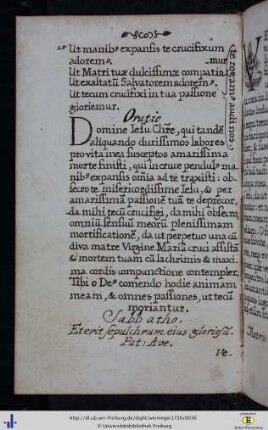 Ut manib⁹ expansis te crucifixum
adorem⁹. mur
Ut Matri tuæ dulcissimæ compatia-
Ut exaltatū Salvatorem adorem⁹.
Ut tecum crucifixi in tua passione
gloriemur.
te rogamus audi nos.
Oratio
Domine Iesu Chr̄e, qui tandē
aliquando durissimos labores
pro vita mea susceptos amarissima
morte finisti, qui in cruce pendul⁹ ma-
nib⁹ expansis oīnia ad te traxisti: ob-
secro te misericordissime Iesu, & per
amarissimā passionē tuā te deprecor,
da mihi tecū crucifigi, da mihi obsecro
omniū sensuū meorū plenissimam
mortificationē, da ut perpetuo una cū
diva matre Virgine Mariā cruci assistā
& mortem tuam cū lachrimis & maxi-
ma cordis compunctione contempler.
Tibi o De⁹ comendo hodie animam
meam, & omnes passiones, ut tecū
moriantur.
Sabbatho.
Et erit sepulchrum eius gloriosū.
Pat: Ave.
Ve.
http://dl.ub.uni-freiburg.de/diglit/wininger1736/0036
© Universitätsbibliothek Freiburg